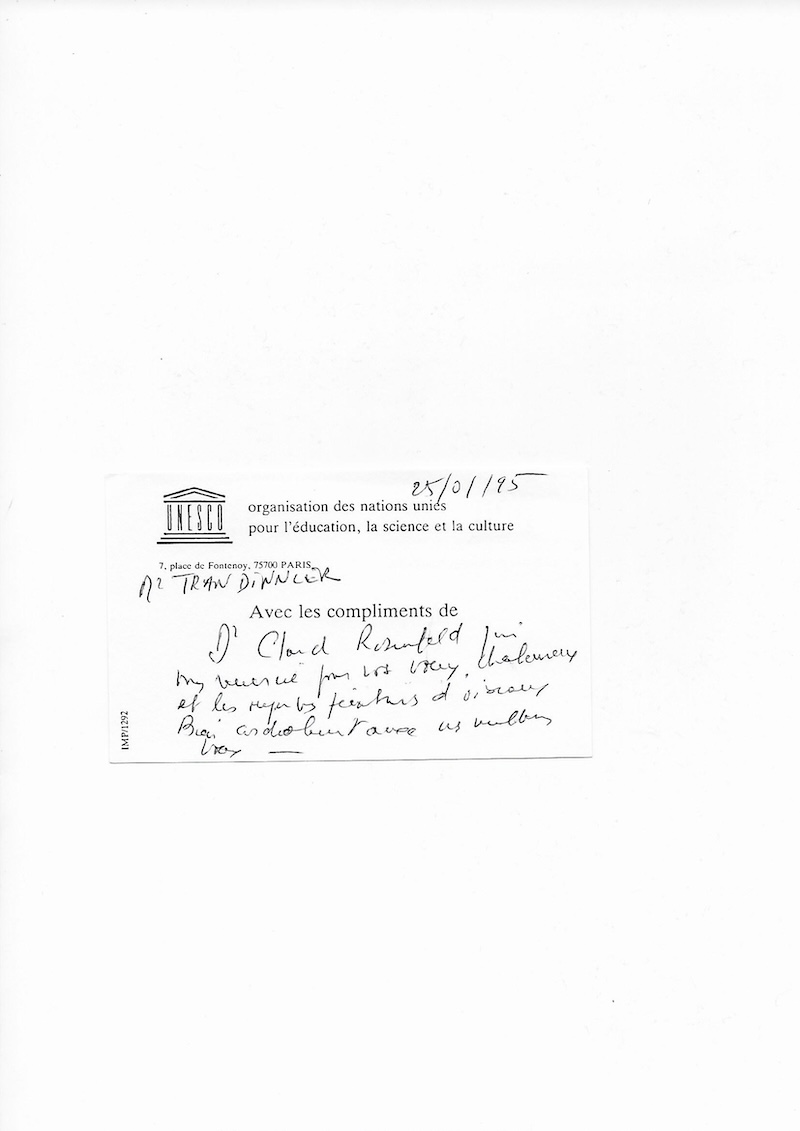 25/01/95
UNESCO
organisation des nations unies
pour l'éducation, la science et la culture
7, place de Fontenoy, 75700 PARIS
Mr TRAN DINH
Avec les compliments de
Dr Claud Rosenfeld qui
vous remercie pour vos voeux chaleureux
et les superbes peintures d'oiseaux
Bien cordialement avec ses meilleurs
voeux —
IMP/1292